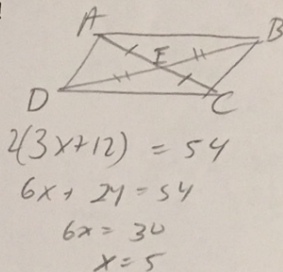 A
B
E
D
C
2(3x+12) = 54
6x + 24 = 54
6x = 30
x = 5